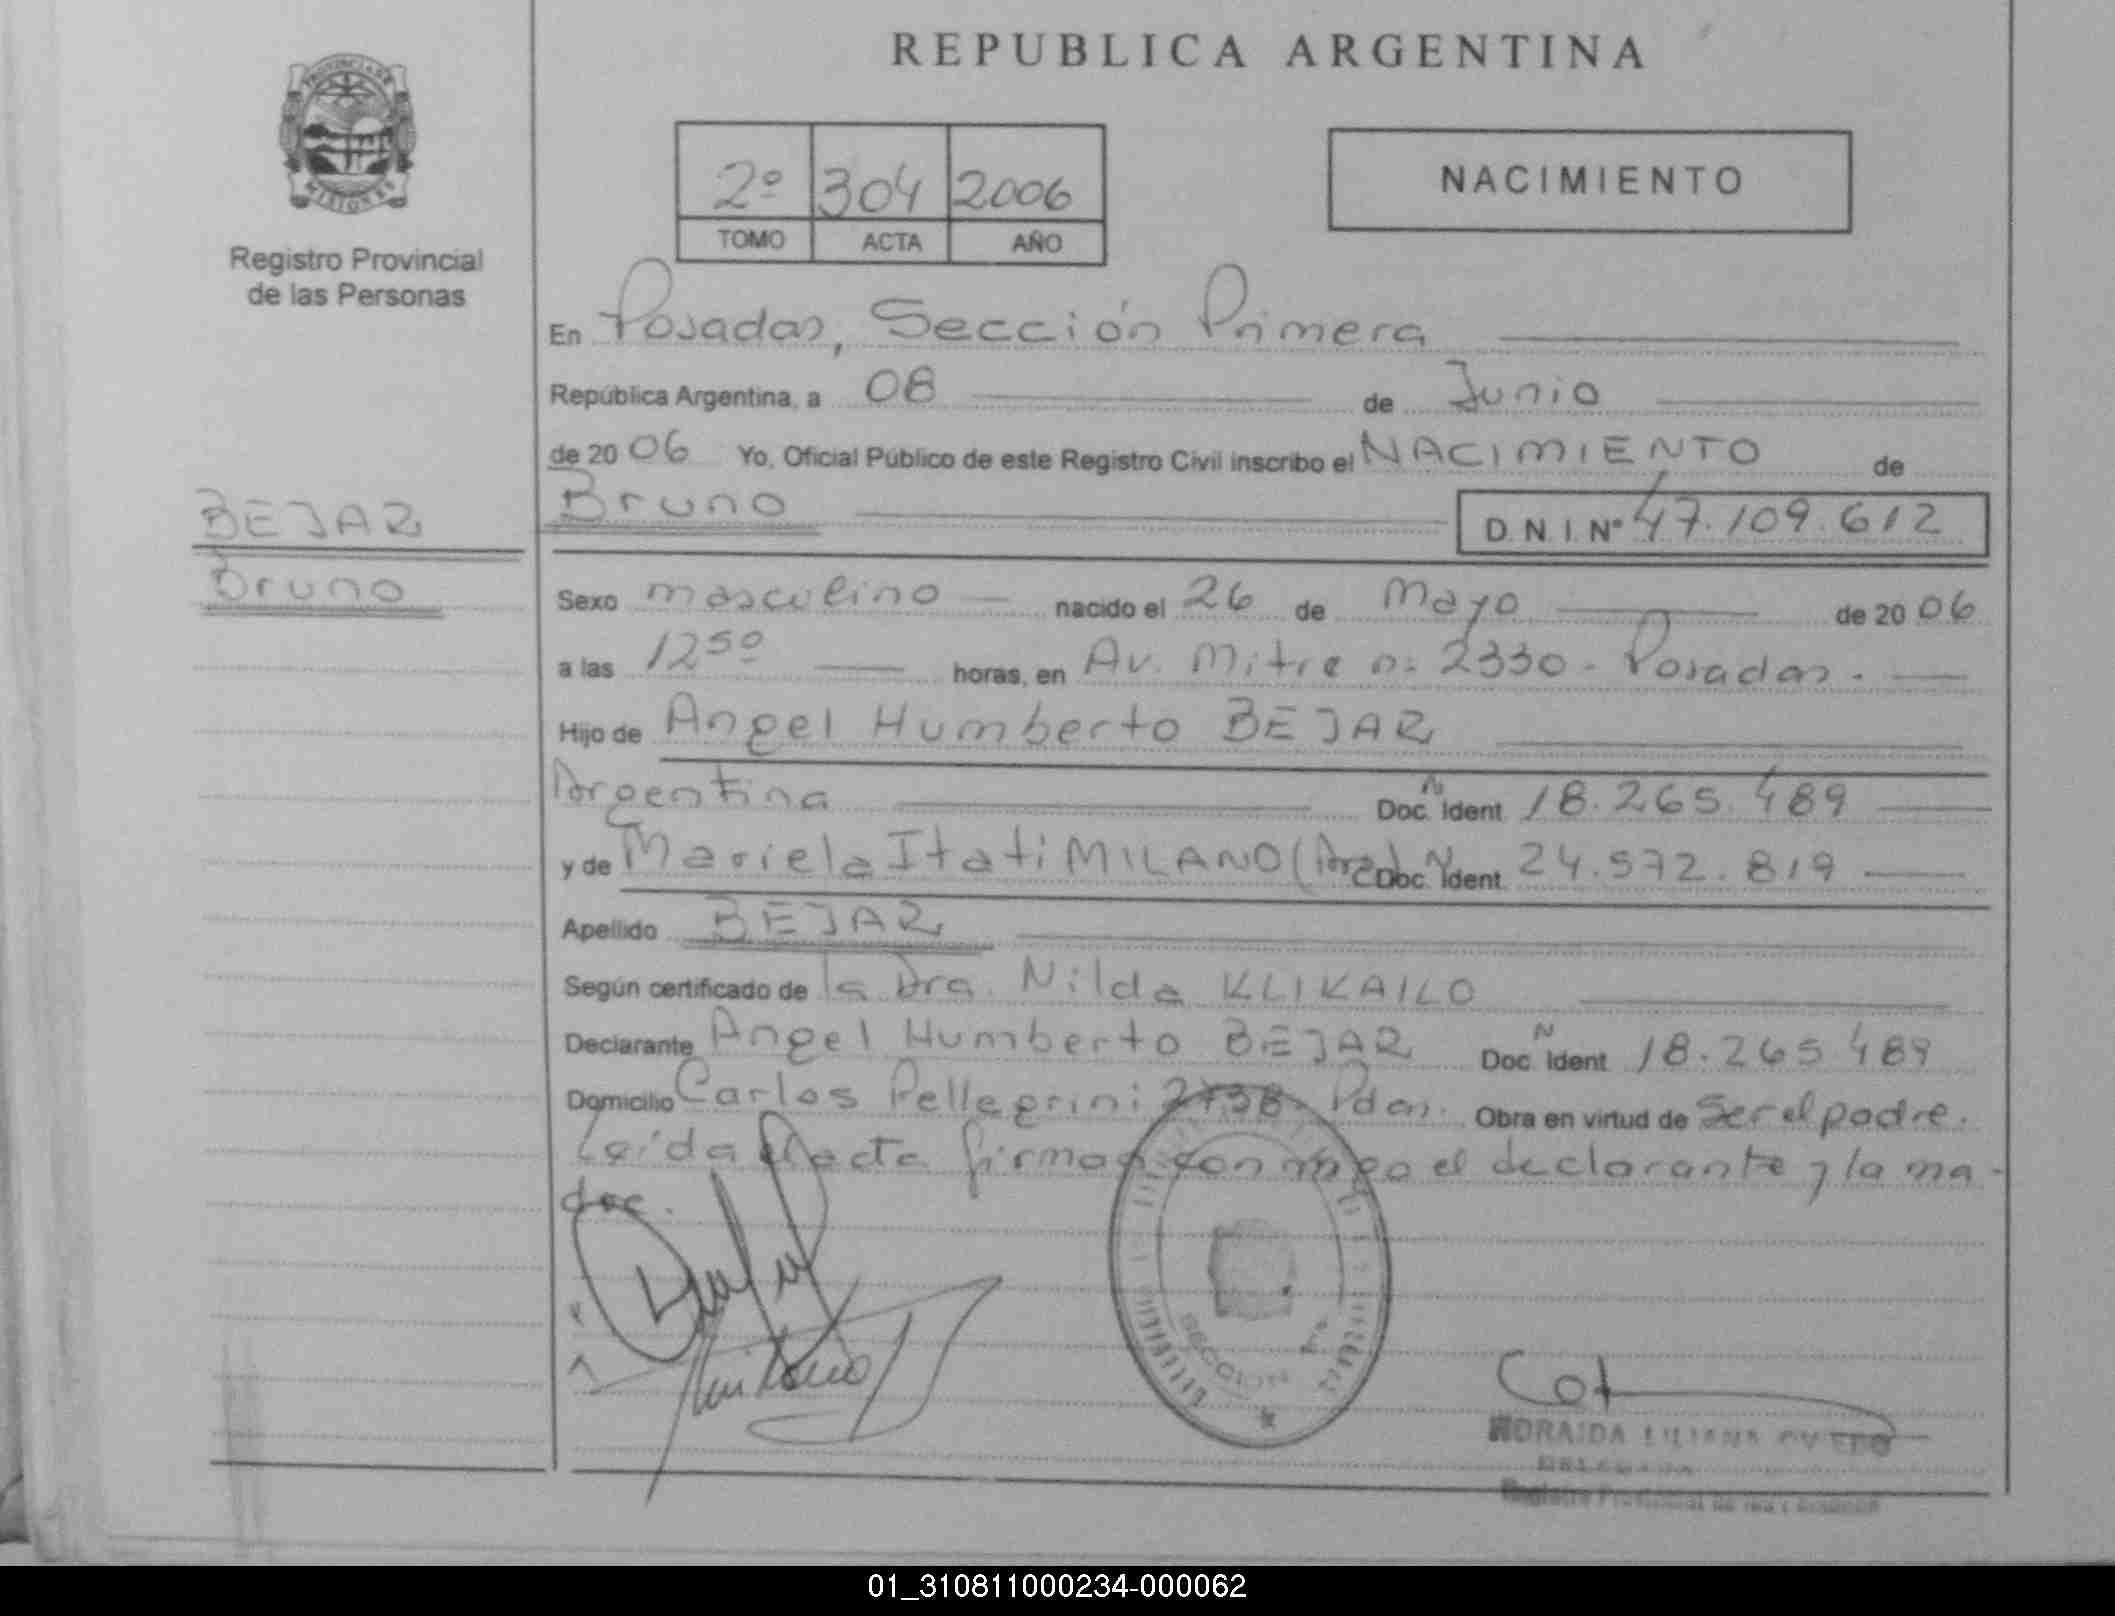 REPUBLICA ARGENTINA
PROVINCIA DE
MISIONES
Registro Provincial
de las Personas
2º 304 2006
TOMO ACTA AÑO
NACIMIENTO
En Posadas, Sección Primera
República Argentina, a 08 de Junio
de 20 06 Yo, Oficial Público de este Registro Civil inscribo el NACIMIENTO de
BEJAR
Bruno
Bruno D.N.I. Nº 47.109.612
Sexo masculino nacido el 26 de Mayo de 20 06
a las 12⁵⁰ horas, en Av. Mitre nº 2330 - Posadas.
Hijo de Angel Humberto BEJAR
Argentina Doc. N Ident. 18.265.489
y de Mariela Itati MILANO (Arg.) Doc. N Ident. 24.572.819
Apellido BEJAR
Según certificado de la Dra. Nilda KLIKAILO
Declarante Angel Humberto BEJAR Doc. N Ident. 18.265.489
Domicilio Carlos Pellegrini 2738 Pdas. Obra en virtud de Ser el padre.
Leída el acta firman conmigo el declarante y la ma-
dre.
SECCION 1ra
Milano
NORAIDA LILIANA OVIEDO
DELEGADA
Registro Provincial de las Personas
01_310811000234-000062